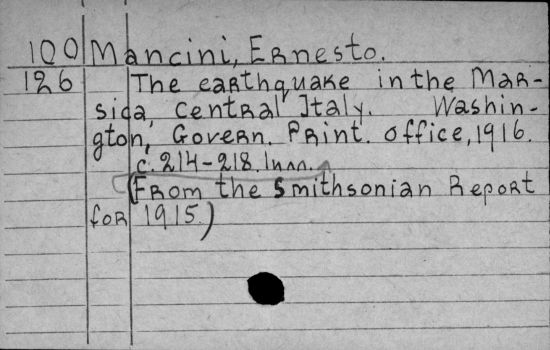 100 Mancini, Ernesto.
126 The earthquake in the Mar-
sica, central Italy. Washin-
gton, Govern. Print. office, 1916.
c. 214-218.
(From the Smithsonian Report
for 1915.)